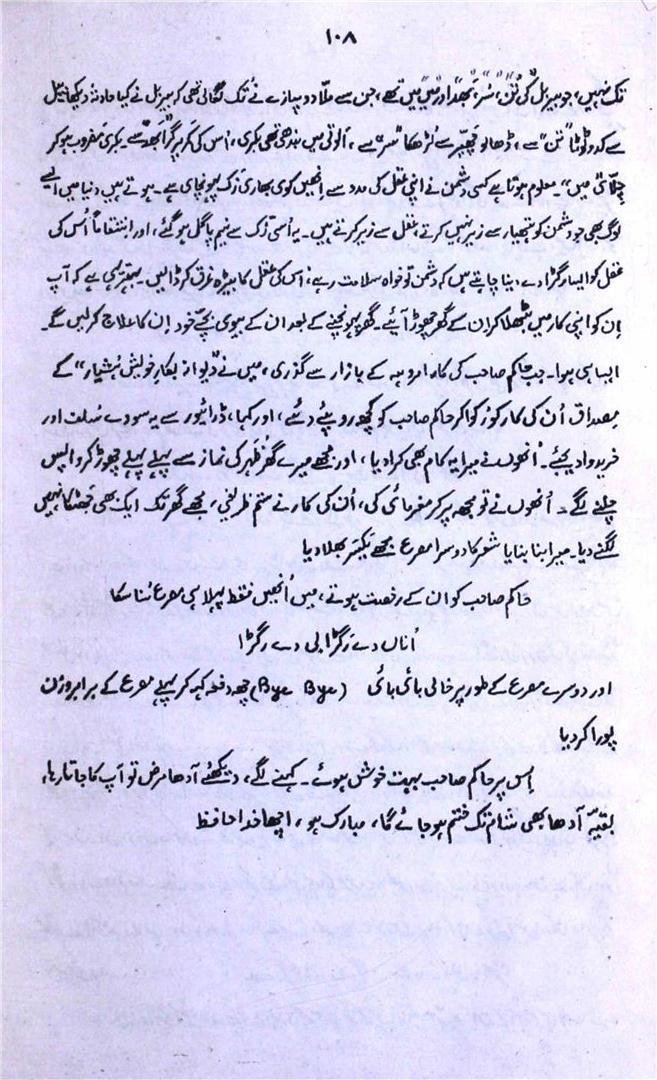 ۱۰۸
تک نہیں، جو بیربل کی "تُن"، "سُر"، "بھد" اور "میں میں" تھے، جن سے ملّا دو پیازے نے تُک نکالی تھی کہ بیربل نے کیا حادثہ دیکھا، بیل
سے کدو ٹوٹا "تن" سے، ڈھالو چھپّر سے لُڑھکا "سر" سے، الوتی میں بندھی تھی بکری، اُس کی کمر پر گرا "بھد" سے۔ بکری مضروب ہو کر
چلّائی "میں"، معلوم ہوتا ہے کسی دشمن نے اپنی عقل کی مدد سے انھیں کوئی بھاری زک پہونچائی ہے۔ ہوتے ہیں دنیا میں ایسے
لوگ بھی جو دشمن کو ہتھیار سے زیر نہیں کرتے، عقل سے زیر کرتے ہیں۔ یہ اُسی زک سے نیم پاگل ہو گئے، اور انتقاماً اُس کی
عقل کو ایسا رگڑا دے دینا چاہتے ہیں کہ دشمن تو خواہ سلامت رہے، اس کی عقل کا بیڑہ غرق کر ڈالیں۔ بہتر یہی ہے کہ آپ
اِن کو اپنی کار میں بٹھلا کر ان کے گھر چھوڑ آئیے۔ گھر پہونچنے کے بعد ان کے بیوی بچّے خود اِن کا علاج کر لیں گے۔
ایسا ہی ہوا۔ جب حاکم صاحب کی کار امروہہ کے بازار سے گذری، میں نے "دیوانہ بکارِ خویش ہُشیار" کے
بمصداق اُن کی کار کو رُکوا کر حاکم صاحب کو کچھ روپئے دئے، اور کہا، ڈرائیور سے یہ سودے سُلف اور
خریدوا دیجئے۔ اُنھوں نے میرا یہ کام بھی کرا دیا، اور مجھے میرے گھر ظہر کی نماز سے پہلے پہلے چھوڑ کر واپس
چلنے لگے۔ اُنھوں نے تو مجھ پر کرمفرمائی کی، اُن کی کار نے ستم ظریفی، مجھے گھر تک ایک بھی جھٹکا نہیں
لگنے دیا۔ میرا بنا بنایا شعر کا دوسرا مصرع مجھے یکسر بھلا دیا
حاکم صاحب کو ان کے رخصت ہوتے، میں اُنھیں فقط پہلا ہی مصرع سُنا سکا
اُناں دے رَگڑا بی دے رگڑا
اور دوسرے مصرع کے طور پر خالی بائی بائی (Bye Bye) چھ دفعہ کہہ کر پہلے مصرع کے برابر وزن
پورا کر دیا
اِس پر حاکم صاحب بہت خوش ہوئے۔ کہنے لگے، دیکھئے آدھا مرض تو آپ کا جاتا رہا،
بقیہّ آدھا بھی شام تک ختم ہو جائے گا، مبارک ہو، اچھا خدا حافظ